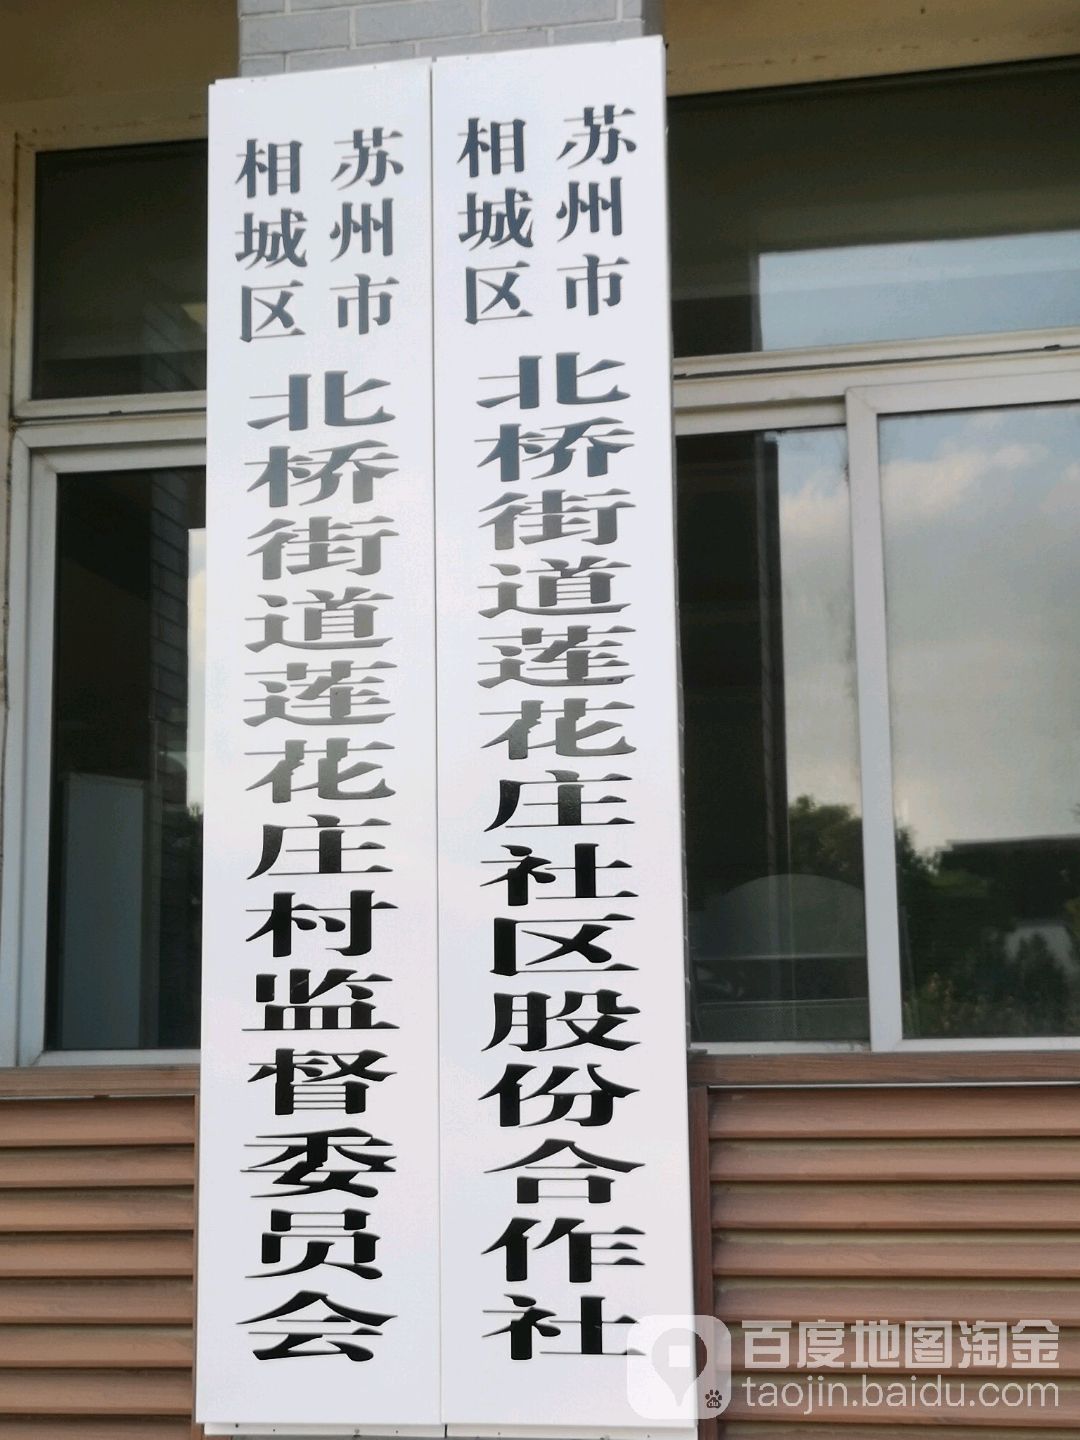 苏州市
相城区
北桥街道莲花庄社区股份合作社
苏州市
相城区
北桥街道莲花庄村监督委员会
百度地图淘金
taojin.baidu.com